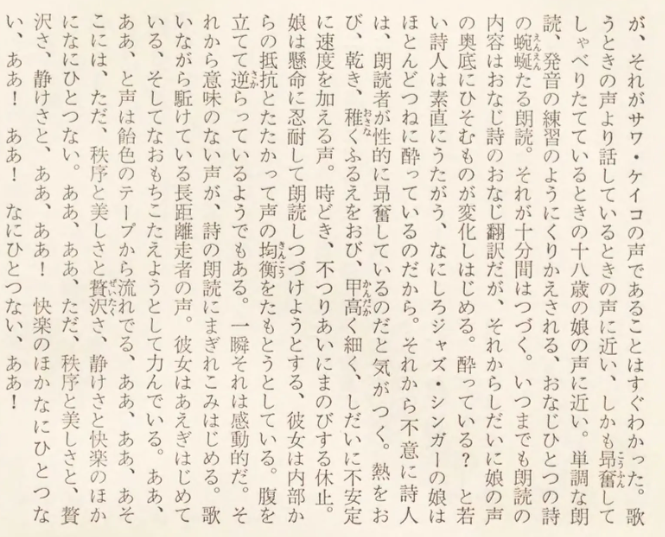 が、それがサワ・ケイコの声であることはすぐわかった。歌
うときの声より話しているときの声に近い、しかも昂奮して
しゃべりたてているときの十八歳の娘の声に近い。単調な朗
読、発音の練習のようにくりかえされる、おなじひとつの詩
の蜿蜒たる朗読。それが十分間はつづく。いつまでも朗読の
内容はおなじ詩のおなじ翻訳だが、それからしだいに娘の声
の奥底にひそむものが変化しはじめる。酔っている? と若
い詩人は素直にうたがう、なにしろジャズ・シンガーの娘は
ほとんどつねに酔っているのだから。それから不意に詩人
は、朗読者が性的に昂奮しているのだと気がつく。熱をお
び、乾き、稚くふるえをおび、甲高く細く、しだいに不安定
に速度を加える声。時どき、不つりあいにまのびする休止。
娘は懸命に忍耐して朗読しつづけようとする、彼女は内部か
らの抵抗とたたかって声の均衡をたもとうとしている。腹を
立てて逆らっているようでもある。一瞬それは感動的だ。そ
れから意味のない声が、詩の朗読にまぎれこみはじめる。歌
いながら駈けている長距離走者の声。彼女はあえぎはじめて
いる、そしてなおもちこたえようとして力んでいる。ああ、
ああ、と声は飴色のテープから流れでる、ああ、ああ、あそ
こには、ただ、秩序と美しさと贅沢さ、静けさと快楽のほか
になにひとつない。ああ、ああ、ただ、秩序と美しさと、贅
沢さ、静けさと、ああ、ああ! 快楽のほかなにひとつな
い、ああ! ああ! なにひとつない、ああ!